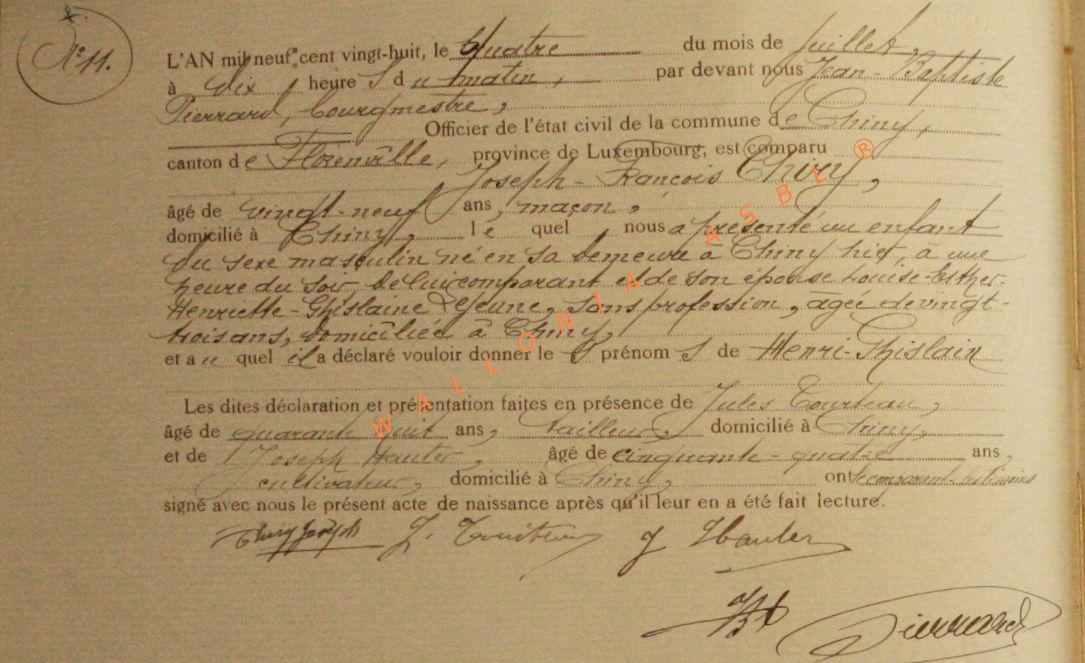 N° 11.
L'AN mil neuf cent vingt-huit, le Quatre du mois de Juillet,
à dix heure s du matin, par devant nous Jean-Baptiste
Pierrard, bourgmestre,
Officier de l'état civil de la commune de Chiny,
canton de Florenville, province de Luxembourg, est comparu
Joseph-François Chiny,
âgé de vingt-neuf ans, maçon,
domicilié à Chiny, le quel nous a présenté un enfant
du sexe masculin né en sa demeure à Chiny hier, à une
heure du soir de lui comparant et de son épouse Louise-Esther-
Henriette-Ghislaine Lejeune, sans profession, agée de vingt-
trois ans, domiciliée à Chiny,
et au quel il a déclaré vouloir donner le s prénom s de Henri-Ghislain
Les dites déclaration et présentation faites en présence de Jules
âgé de quarante huit ans, tailleur, domicilié à Chiny,
et de Joseph Hauter, âgé de cinquante-quatre ans,
cultivateur, domicilié à Chiny, ont
signé avec nous le présent acte de naissance après qu'il leur en a été fait lecture.
Chiny Joseph J. J Hauter
Pierrard
WALLONIA ASBL ®